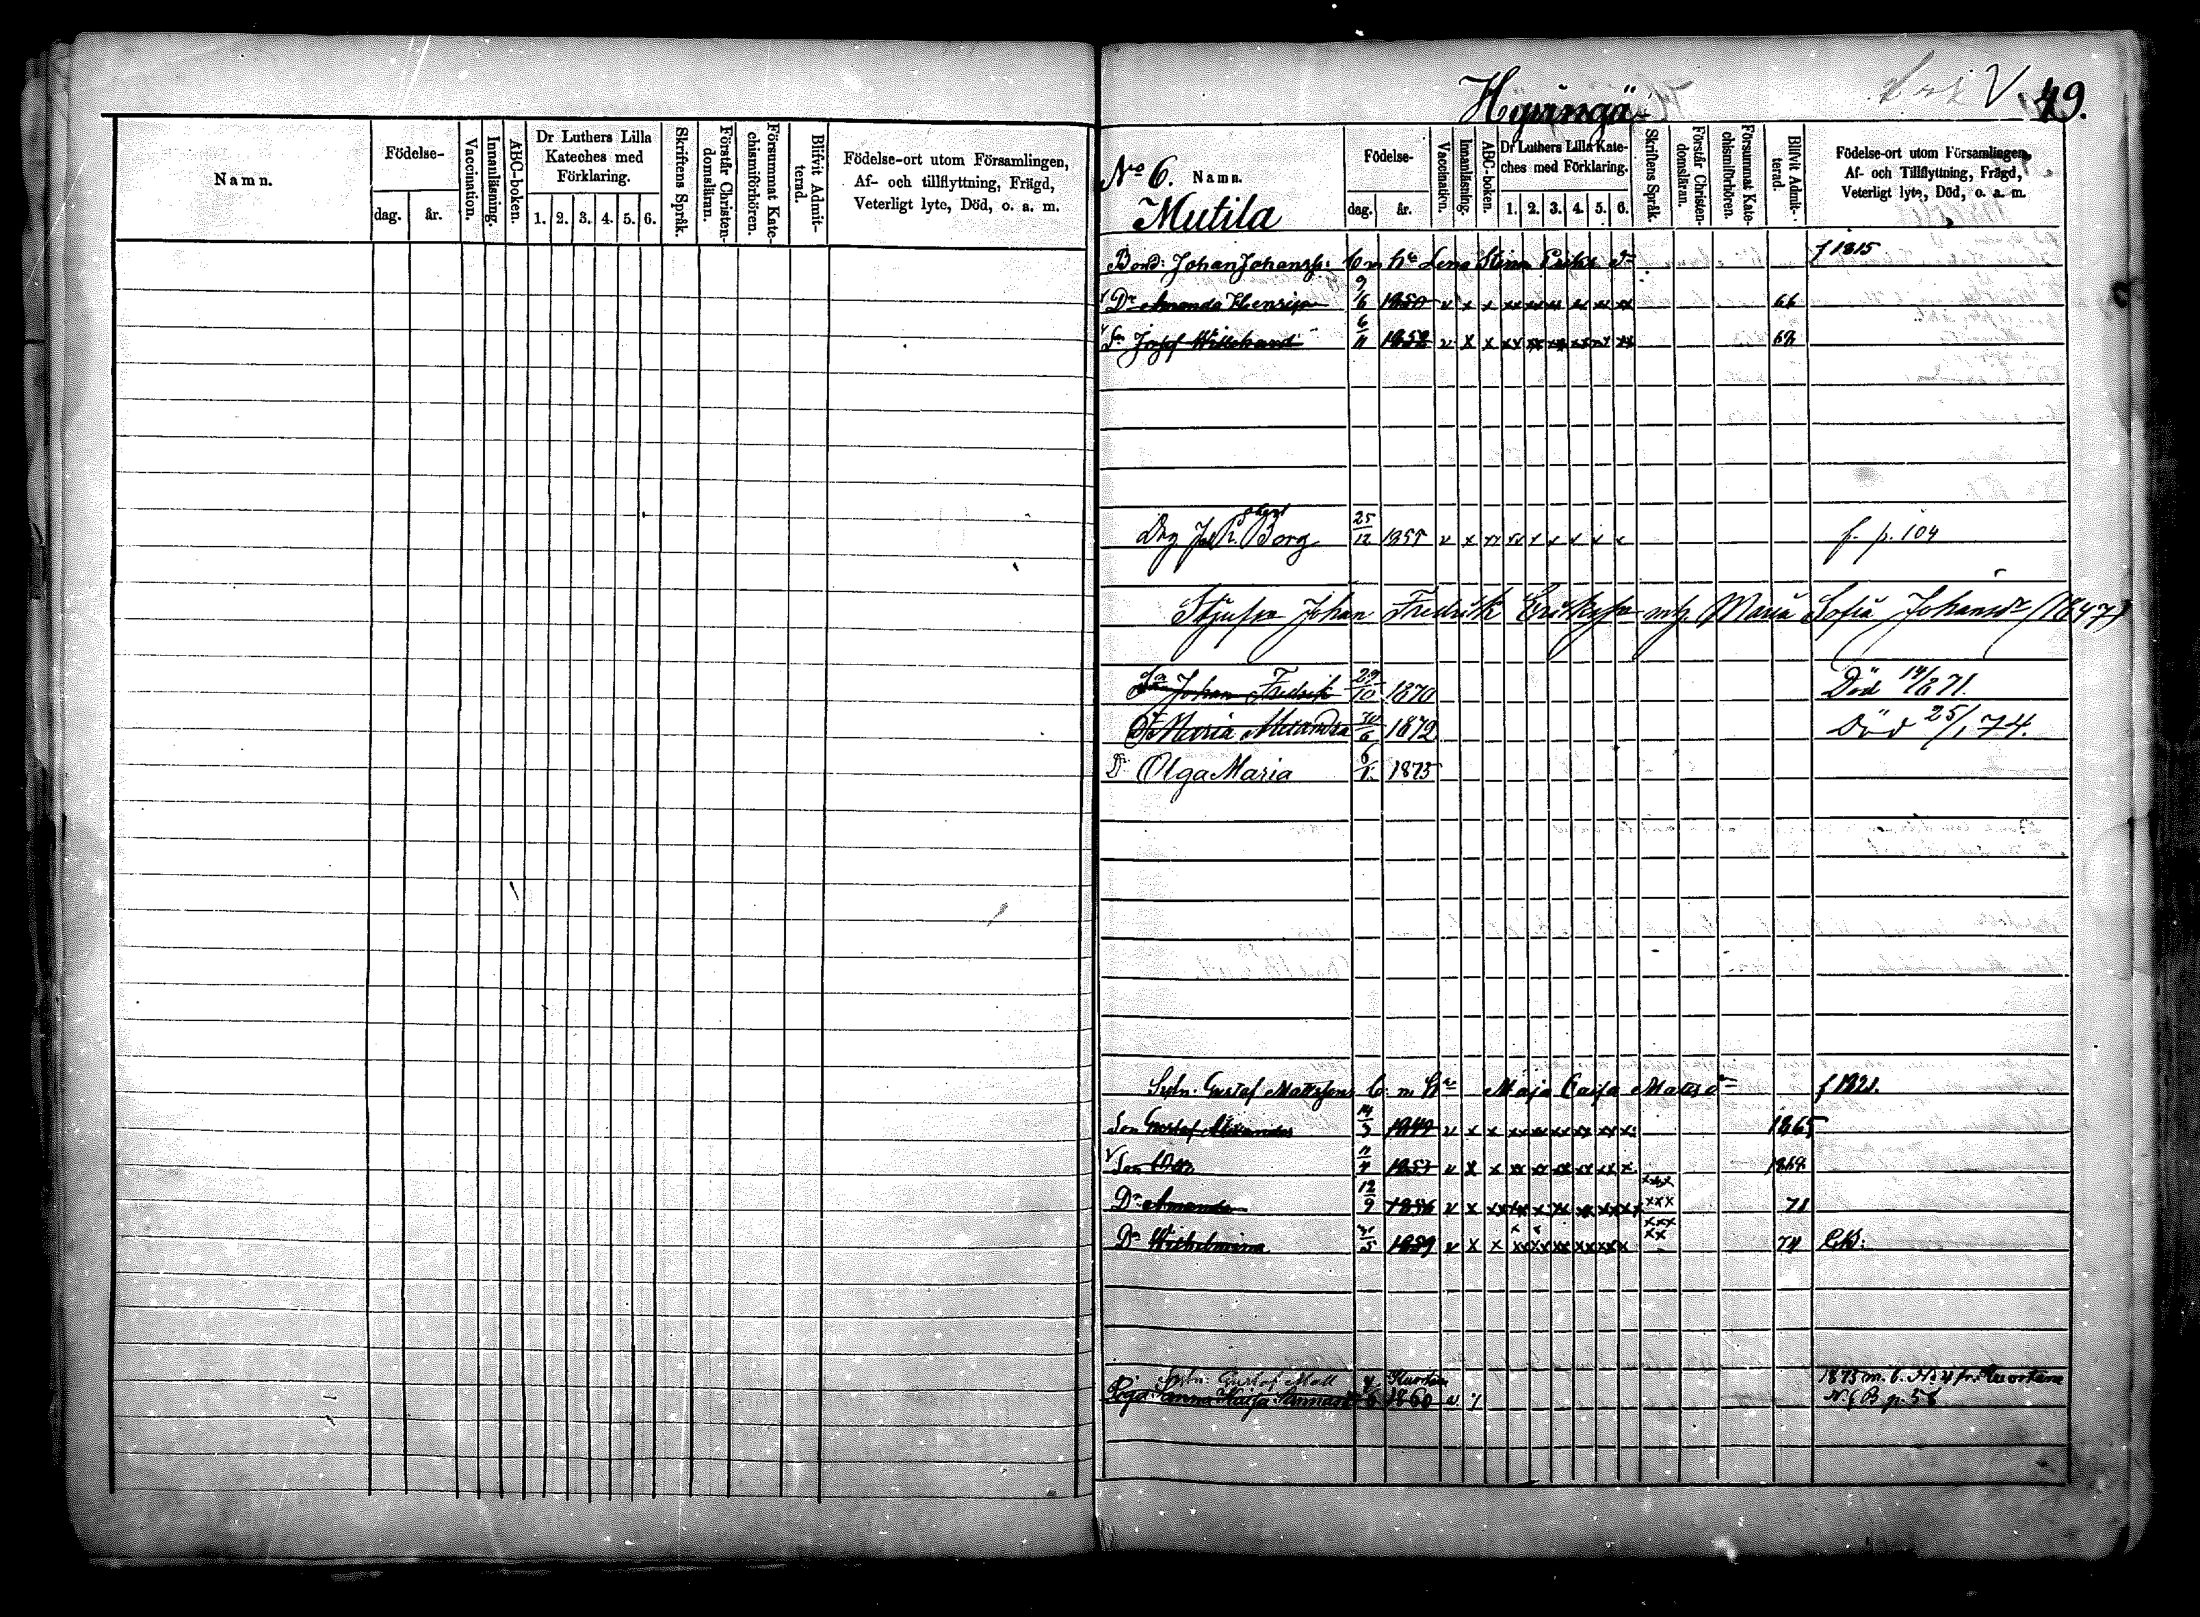 Namn.
Födelse-
dag.
år.
Vaccination.
Innanläsning.
ABC-boken.
Dr Luthers Lilla
Kateches med
Förklaring.
1. 2. 3. 4. 5. 6.
Skriftens Språk.
Förstår Christen-
domsläran.
Försummat Kate-
chismiförhören.
Blifvit Admit-
terad.
Födelse-ort utom Församlingen,
Af- och tillflyttning, Frägd,
Veterligt lyte, Död, o. a. m.
V. 49.
No 6. Namn.
Mutila
Födelse-
dag.
år.
Vaccination.
Innanläsning.
ABC-boken.
Dr Luthers Lilla Kate-
ches med Förklaring.
1. 2. 3. 4. 5. 6.
Skriftens Språk.
Förstår Christen-
domsläran.
Försummat Kate-
chismiförhören.
Blifvit Admit-
terad.
Födelse-ort utom Församlingen,
Af- och Tillflyttning, Frägd,
Veterligt lyte, Död, o. a. m.
Bond: Johan Johanss: C m hu Lena Stina Eriks dr f 1815
Dr Amanda 9/6 1850 v x x xx xx xx x xx xx 66
Sn Josef 6/11 1852 v x x xx xx xx xx xx 69
Drg Joh. Borg 25/12 1855 v x xx xx x x x x x f. p. 104
Johan Fredrik Eriksson m h. Maria Sofia Johansdr (1847)
Sn Johan Fredrik 29/10 1870 Död 14/8 71.
Dr Maria Alexandra 6 1872 Död 25/1 74.
Dr Olga Maria 6/1. 1875
Sytn: Gustaf Mattsson C. m. hu Maja Caisa Matts dr f 1821.
Son Gustaf Alexander 14/3 1849 v x x xx xx xx xx xx x 1865
Son Otto 11/4 1853 v x x xx xx xx xx xx x
Dr Amanda 12/9 1856 v x xx xx x xx xx xx xx xxx 71
Dr Wilhelmina 5 1859 v x x xx xx xx xx xx x xx 74
Sytn: Gustaf Matt
Pigan Anna Kaisa 6 1860 v
1875 m. b. No 4 fr.
N. K B p. 56